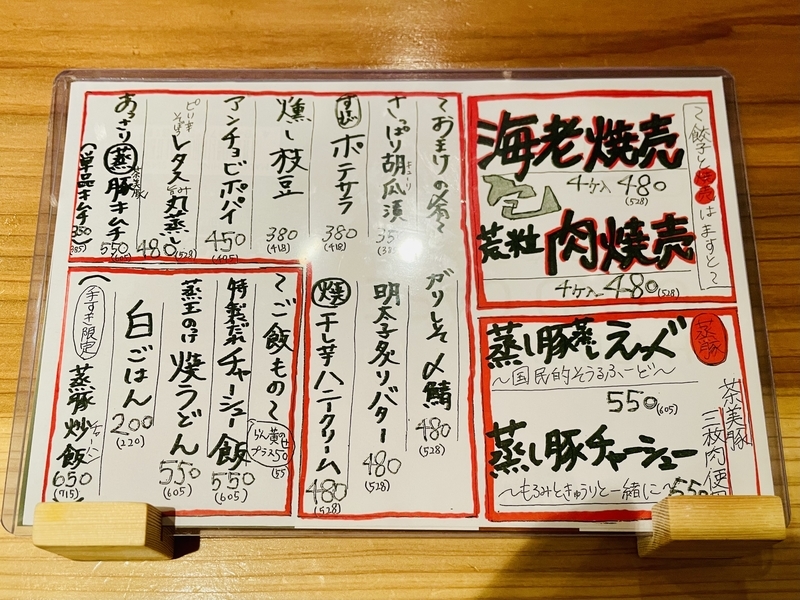 〜餃子と焼売はますと〜
海老焼売
4ケ入 480
(528)
包
荒粒 肉焼売
4ケ入 480
(528)
蒸豚
蒸し豚蒸しえっぐ
〜国民的そうるふーど〜
550(605)
蒸し豚チャーシュー
〜もろみときゅうりと一緒に〜
550
茶美豚
三枚肉使用
〜おまけの品々〜
さっぱり胡瓜漬
キューリ
ポテサラ
380
(418)
燻し枝豆
380
(418)
アンチョビポパイ
450
(495)
ピリ辛そぼろ
レタス旨み丸蒸し
480
(528)
あっさり蒸豚キムチ
茶美豚
550
(単品キムチ350)
ガリしそ〆鯖
480
(528)
明太子炙りバター
480
(528)
焼干し芋ハニークリーム
480
(528)
〜ご飯もの〜
らん黄セ
プラス50
(55)
特製だれチャーシュー飯
550
(605)
蒸玉のっけ焼うどん
550
(605)
白ごはん
200
(220)
手すき限定
蒸豚炒飯
チャーハン
650
(715)